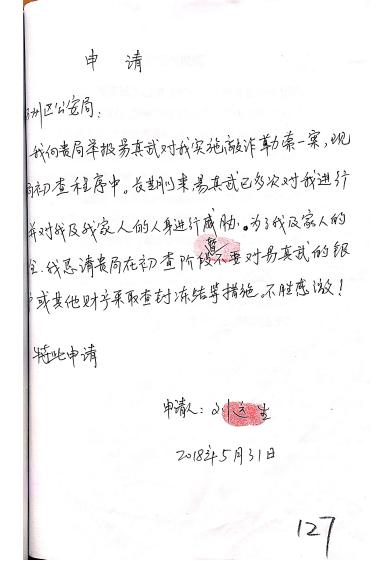 申 请
州区公安局：
我向贵局举报易真武对我实施敲诈勒索一案，现
初查程序中。长期以来，易真武已多次对我进行
并对我及我家人的人身进行威胁。为了我及家人的
全，我恳请贵局在初查阶段暂不要对易真武的银
户或其他财产采取查封冻结等措施。不胜感激！
特此申请
申请人：刘运生
2018年5月31日
127